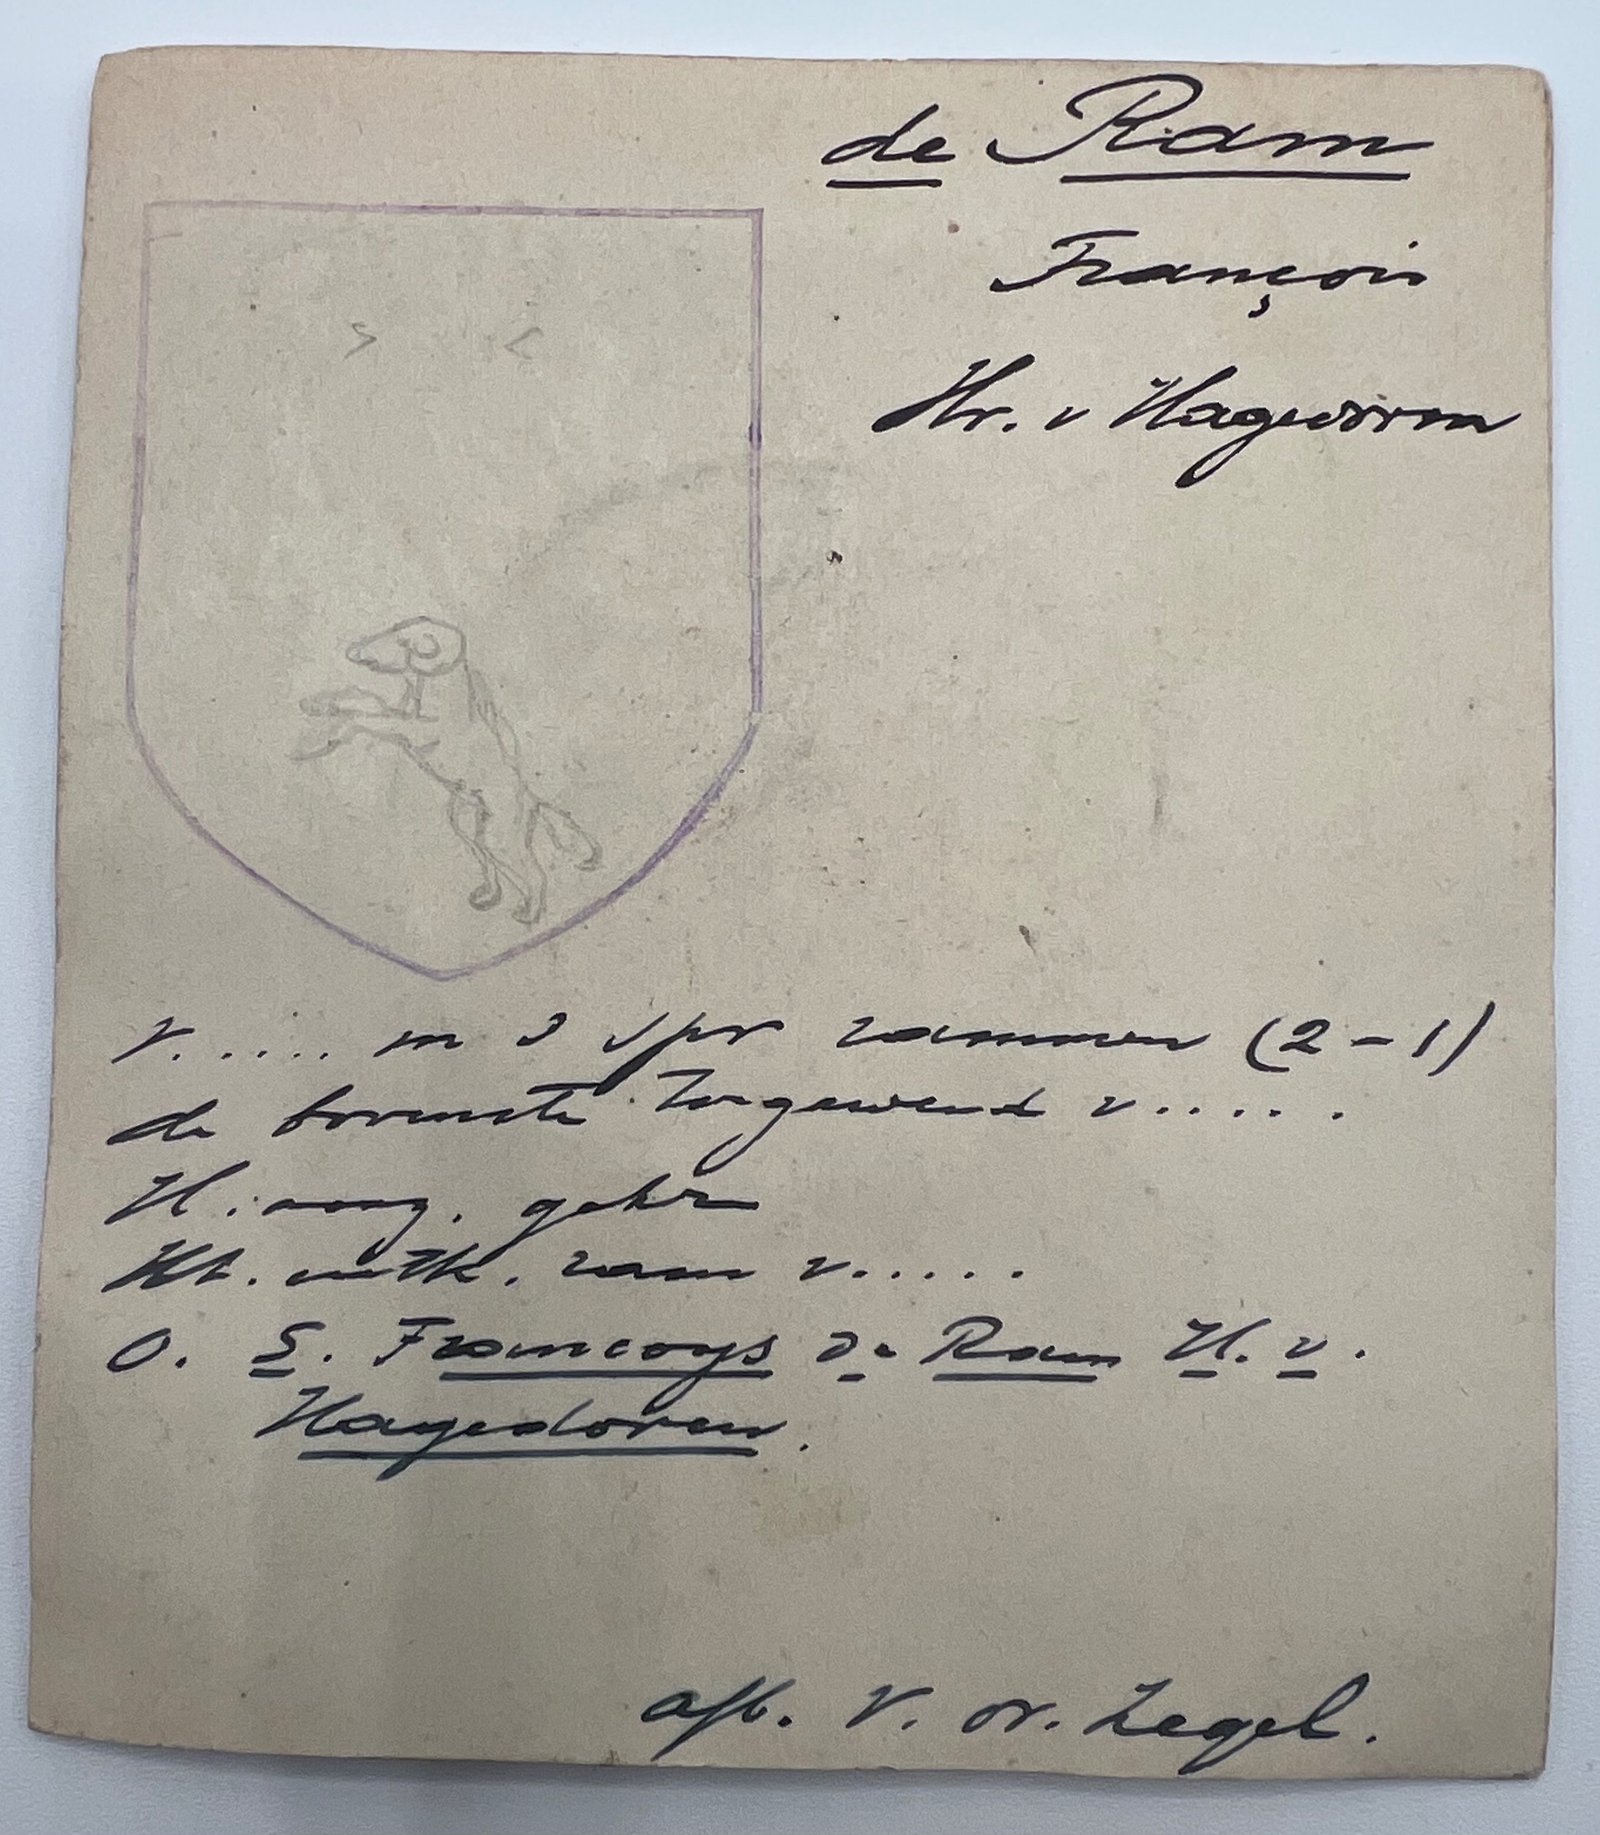 de Ram
François
Hr. v Hagedorn
V..... m 3 spr rammen (2-1)
de bovenste toegewend v.....
H: aang. gekr
Ht. uitk. ram v.....
O. S. Francoys de Ram H. v.
Hagedoren.
afb. v. or. Zegel.